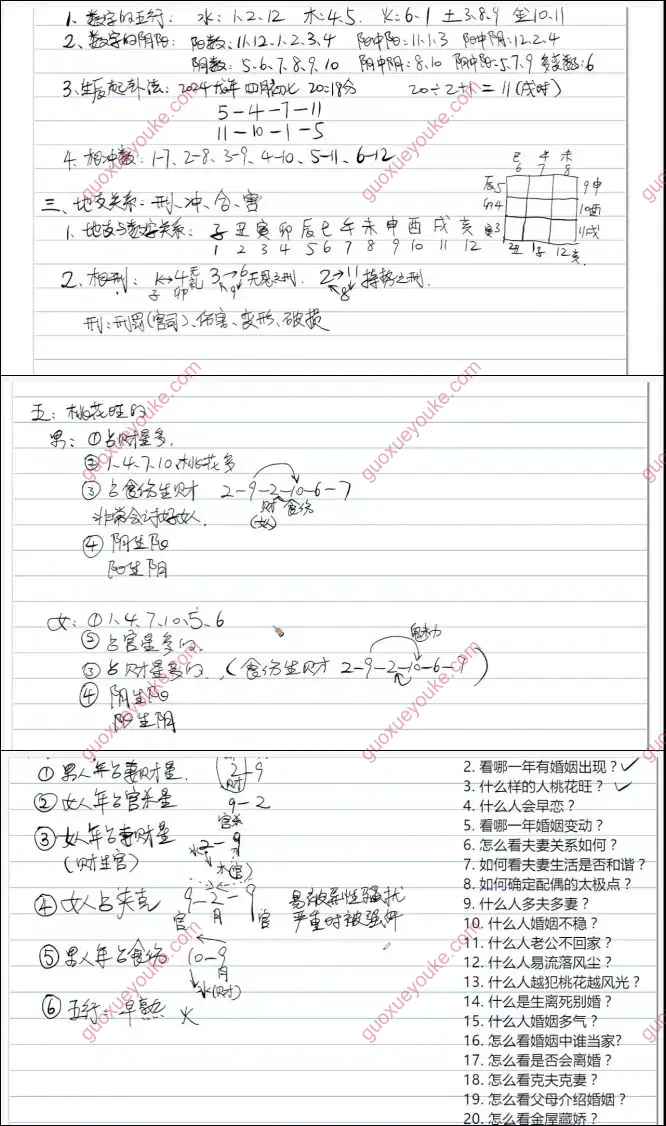 1、数字的五行： 水：1、2、12 木：4、5、 火：6、7 土3、8、9 金10、11
2、数字的阴阳： 阳数：11、12、1、2、3、4 阳中阳：11、1、3 阳中阴：12、2、4
阴数：5、6、7、8、9、10 阴中阴：8、10 阴中阳：5、7、9 多变数：6
3、生辰起卦法：2024龙年 四月初七 20:18分 20÷2+1=11(戌时)
5-4-7-11
11-10-1-5
4、相冲数：1-7、2-8、3-9、4-10、5-11、6-12
巳 午 未
6 7 8
辰5 9申
卯4 10酉
寅3 11戌
2丑 1子 12亥
三、地支关系：刑、冲、合、害
1、地支与数字关系：子 丑 寅 卯 辰 巳 午 未 申 酉 戌 亥
1 2 3 4 5 6 7 8 9 10 11 12
2、相刑： 1↔4无礼 3→6无恩之刑、 2→11持势之刑、
子 卯 9 8
刑：刑罚(官司)、伤害、变形、破损
五：桃花旺的
男：①占财星多、
②1、4、7、10、桃花多
③占食伤生财 2-9-2-10-6-7
非常会讨好女人、 财 食伤
(女)
④阴生阳
阳生阴
魅力
女：①1、4、7、10、5、6
②占官星多的、
③占财星多的、(食伤生财 2-9-2-10-6-9)
④阴生阳
阳生阴
①男人年占妻财星、 2-9
财
②女人年占官杀星 9-2
官杀
③女人年占妻财星 2-9
(财生官) 水 木(官)
④女人占夹克 9-2-9 易被异性骚扰
官 月 官 严重时被强奸
⑤男人年占食伤 10-9
月
水(财)
⑥五行：早熟 火
2. 看哪一年有婚姻出现？✓
3. 什么样的人桃花旺？✓
4. 什么人会早恋？
5. 看哪一年婚姻变动？
6. 怎么看夫妻关系如何？
7. 如何看夫妻生活是否和谐？
8. 如何确定配偶的太极点？
9. 什么人多夫多妻？
10. 什么人婚姻不稳？
11. 什么人老公不回家？
12. 什么人易流落风尘？
13. 什么人越犯桃花越风光？
14. 什么是生离死别婚？
15. 什么人婚姻多气？
16. 怎么看婚姻中谁当家?
17. 怎么看是否会离婚？
18. 怎么看克夫克妻？
19. 怎么看父母介绍婚姻？
20. 怎么看金屋藏娇？
guoxueyouke.com
guoxueyouke.com
guoxueyouke.com
guoxueyouke.com
guoxueyouke.com
guoxueyouke.com
guoxueyouke.com
guoxueyouke.com
guoxueyouke.com